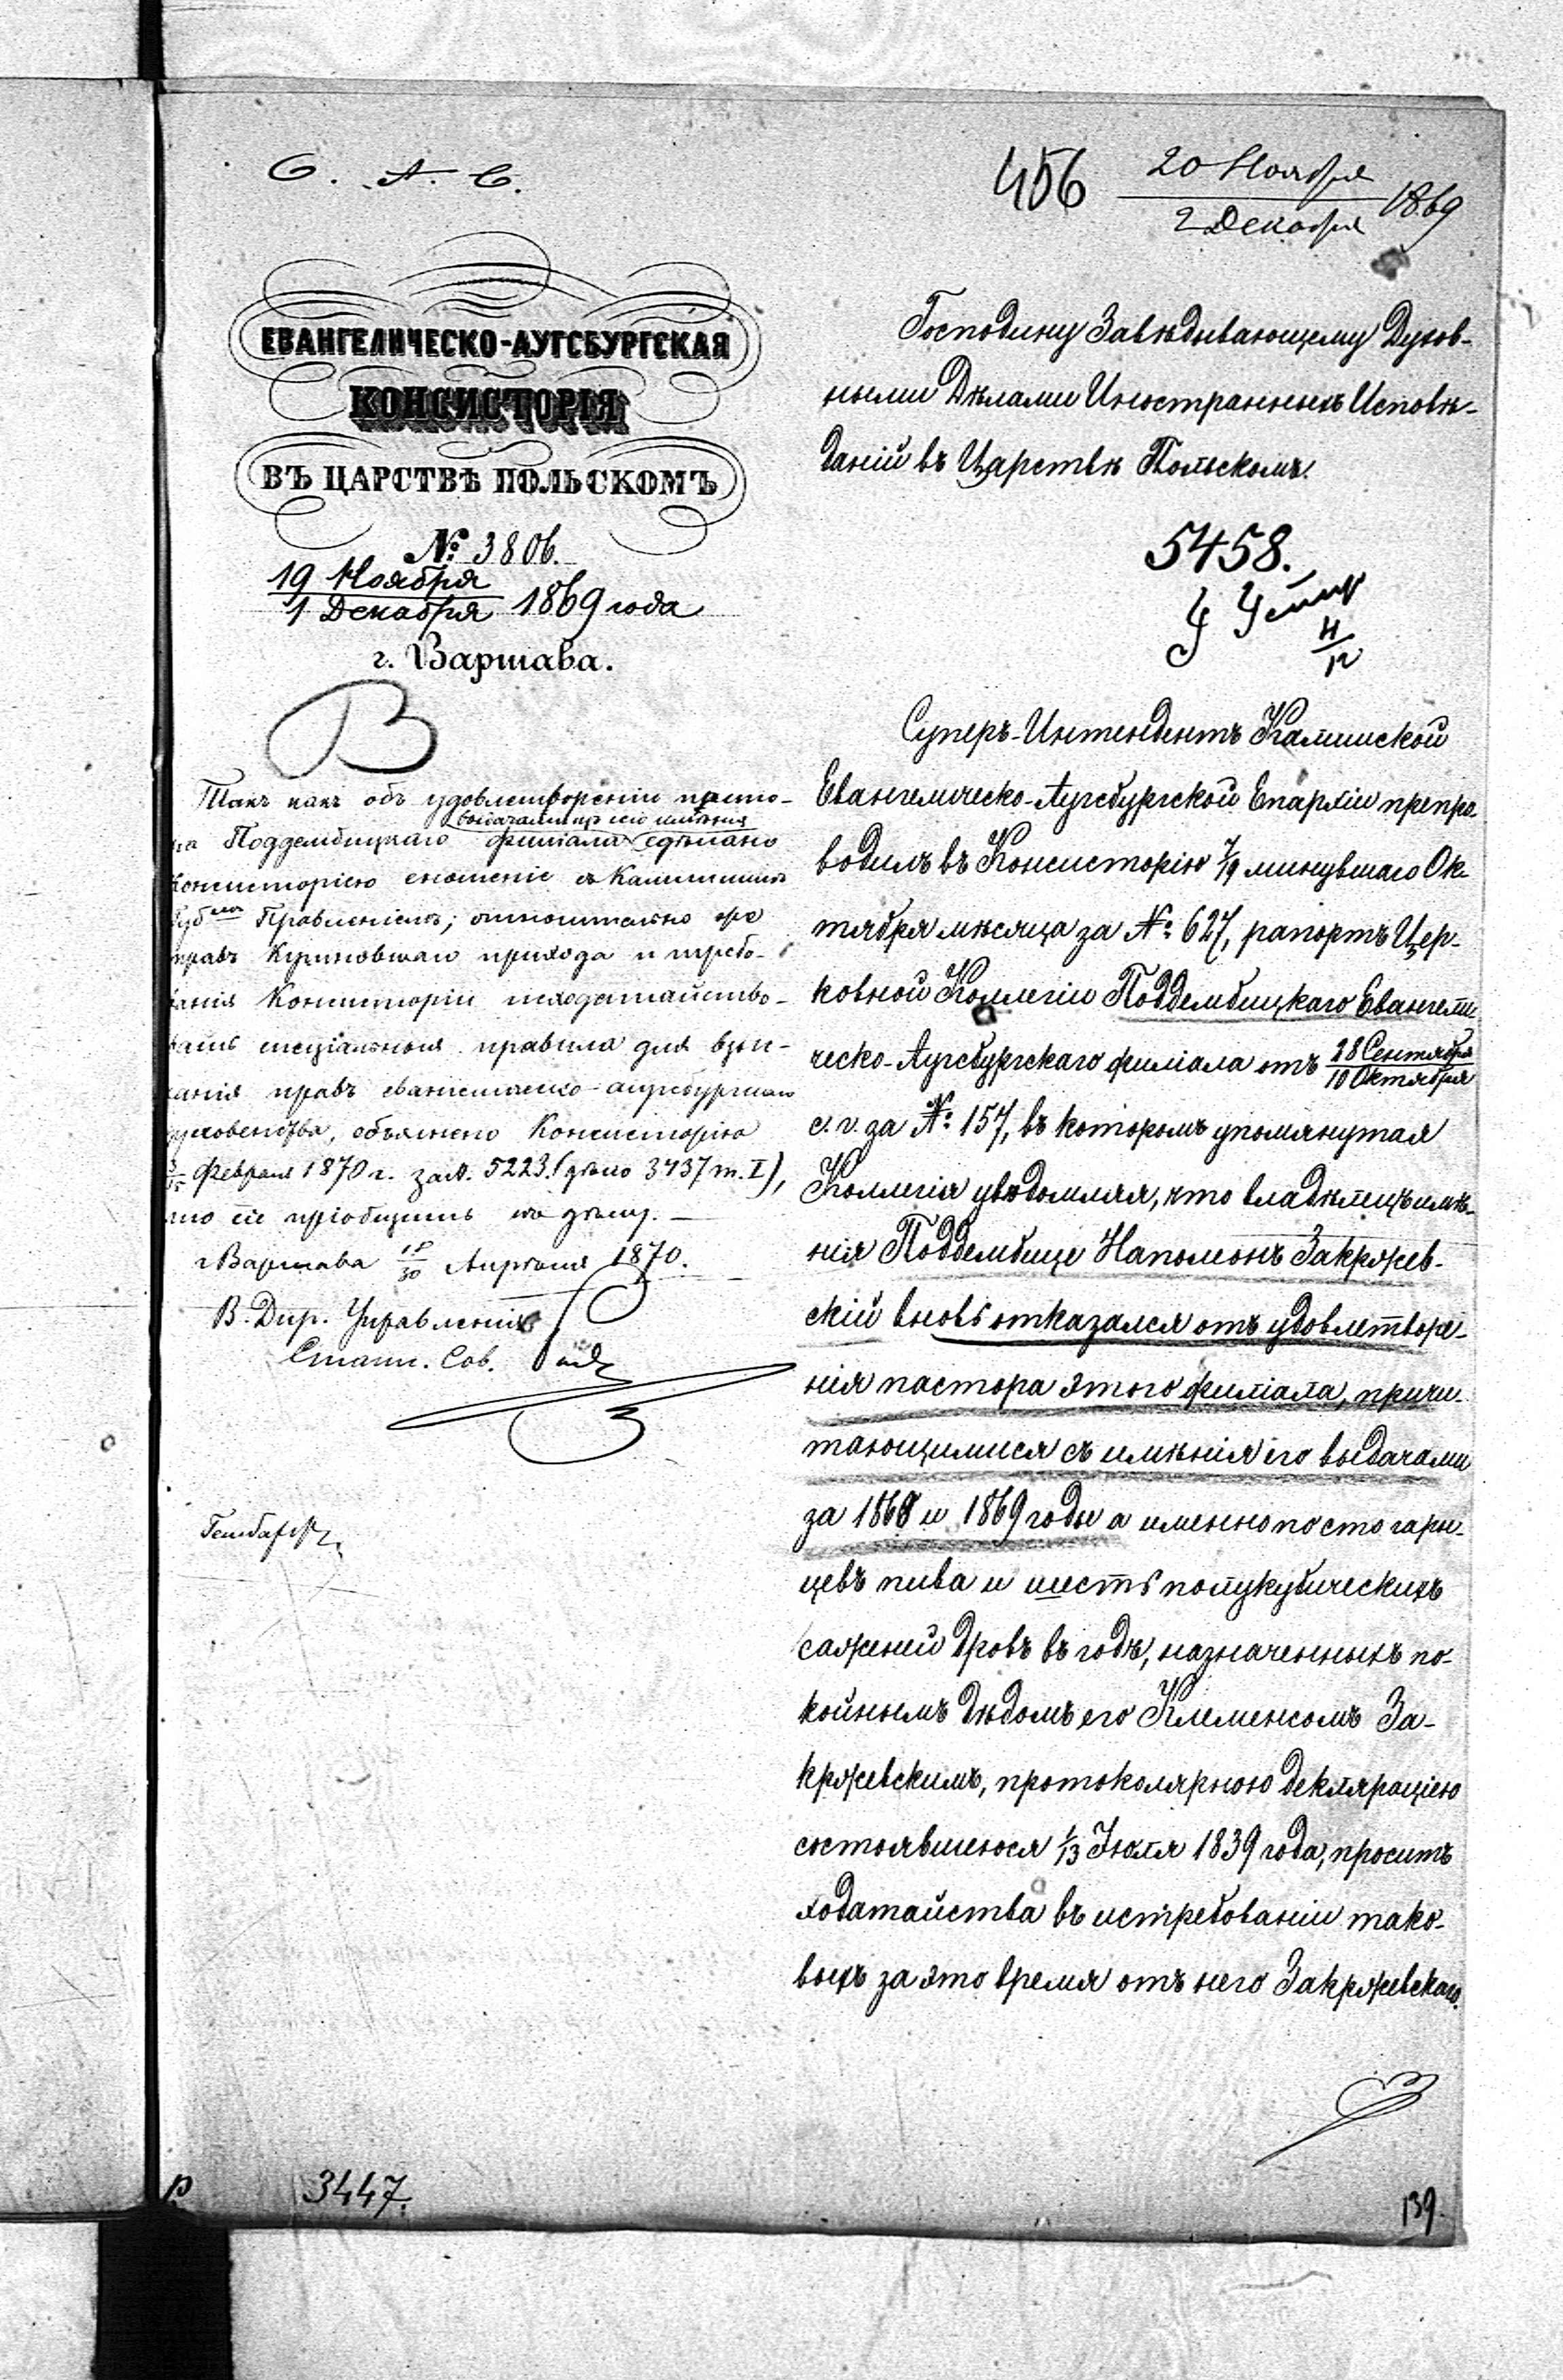 Е. А. С.
456 20 Ноября
2 Декабря 1869
ЕВАНГЕЛИЧЕСКО-АУГСБУРГСКАЯ
КОНСИСТОРІЯ
ВЪ ЦАРСТВѢ ПОЛЬСКОМЪ
№ 3806.
19 Ноября
1 Декабря 1869 года
г. Варшава.
В
Такъ какъ объ удовлетвореніи пасто-
ра Поддембицкаго филіала сдѣлано
Консисторіею сношеніе съ Калишскимъ
Губ Правленіемъ; относительно же
правъ прихода и требо-
ванія Консисторіи исходатайство-
вать спеціальныя правила для взыс-
канія правъ евангелическо-аугсбургскаго
духовенства, объяснено Консисторіею
Февраля 1870 г. за №. 5223. (дѣло 3437 т. I),
то сіе пріобщить къ дѣлу.
г Варшава 18/30 Апрѣля 1870.
В. Дир. Управленія
Статс. Сов.
3447.
Господину Завѣдывающему Духов-
ными Дѣлами Иностранныхъ Исповѣ-
даній въ Царствѣ Польскомъ.
5458.
4/12
Суперъ-Интендентъ Калишской
Евангелическо-Аугсбургской Епархіи препро-
водилъ въ Консисторію 7/19 минувшаго Ок-
тября мѣсяца за № 627, рапортъ Цер-
ковной Коллегіи Поддембицкаго Евангели-
ческо-Аугсбургскаго филіала отъ 28 Сентября
10 Октября
с. г. за № 157, въ которомъ упомянутая
Коллегія увѣдомляя, что владѣлецъ имѣ-
нія Поддембице Наполеонъ Закржев-
скій вновь отказался отъ удовлетворе-
нія пастора этого филіала, причи-
тающимися съ имѣнія его выдачами
за 1868 и 1869 годы а именно по сто гарн-
цевъ пива и шесть полукубическихъ
саженей дровъ въ годъ, назначенныхъ по-
койнымъ дѣдомъ его Клеменсомъ За-
кржевскимъ, протоколярною деклараціею
состоявшеюся 1/13 Іюля 1839 года, проситъ
ходатайства въ истребованіи тако-
выхъ за это время отъ него Закржевскаго.
139.